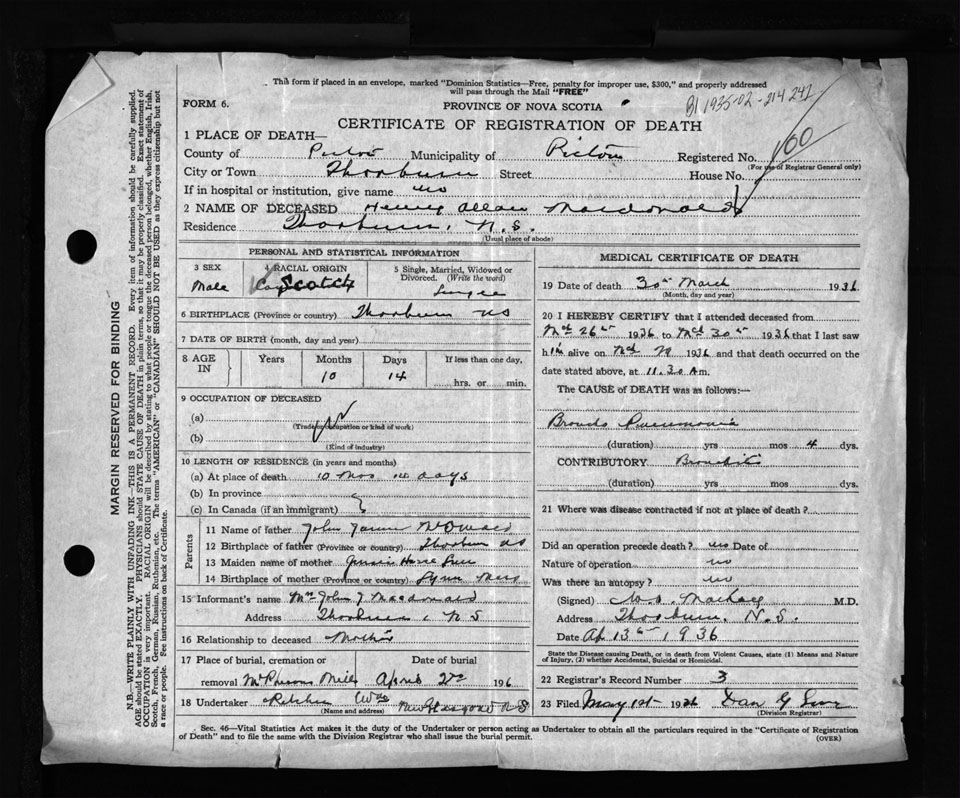 This form if placed in an envelope, marked "Dominion Statistics—Free, penalty for improper use, $300," and properly addressed
will pass through the Mail "FREE"
FORM 6.
PROVINCE OF NOVA SCOTIA
CERTIFICATE OF REGISTRATION OF DEATH
1 PLACE OF DEATH—
County of Pictou Municipality of Pictou Registered No. 100
(For use of Registrar General only)
City or Town Thorburn Street House No.
If in hospital or institution, give name no
2 NAME OF DECEASED Henry Allan Macdonald
Residence Thorburn, N.S.
(Usual place of abode)
PERSONAL AND STATISTICAL INFORMATION
3 SEX
Male
4 RACIAL ORIGIN
Scotch
5 Single, Married, Widowed or Divorced. (Write the word)
Single
6 BIRTHPLACE (Province or country) Thorburn NS
7 DATE OF BIRTH (month, day and year)
8 AGE IN Years Months Days If less than one day,
10 14 hrs. or min.
9 OCCUPATION OF DECEASED
(a)
(Trade or occupation or kind of work)
(b)
(Kind of industry)
10 LENGTH OF RESIDENCE (in years and months)
(a) At place of death 10 mos 14 days
(b) In province
(c) In Canada (if an immigrant)
Parents
11 Name of father John James McDonald
12 Birthplace of father (Province or country) Thorburn NS
13 Maiden name of mother
14 Birthplace of mother (Province or country) Lynn Mass
15 Informant's name Mrs John J Macdonald
Address Thorburn, N S
16 Relationship to deceased Mother
17 Place of burial, cremation or removal
Date of burial
McPherson Mill April 2nd 196
18 Undertaker New Glasgow N S
(Name and address)
MEDICAL CERTIFICATE OF DEATH
19 Date of death 30th March 1936
(Month, day and year)
20 I HEREBY CERTIFY that I attended deceased from
Mch 26th 1936 to Mch 30th 1936 that I last saw
him alive on 1936 and that death occurred on the
date stated above, at 11.30 A m.
The CAUSE of DEATH was as follows:—
Broncho Pneumonia
(duration) yrs mos 4 dys.
CONTRIBUTORY Bronchitis
(duration) yrs mos dys.
21 Where was disease contracted if not at place of death?
Did an operation precede death? no Date of
Nature of operation no
Was there an autopsy? no
(Signed) M.D.
Address Thorburn, N.S.
Date Ap 13th 1936
State the Disease causing Death, or in death from Violent Causes, state (1) Means and Nature of Injury, (2) whether Accidental, Suicidal or Homicidal.
22 Registrar's Record Number 3
23 Filed May 1st 1936 Dan G
(Division Registrar)
Sec. 46—Vital Statistics Act makes it the duty of the Undertaker or person acting as Undertaker to obtain all the particulars required in the "Certificate of Registration
of Death" and to file the same with the Division Registrar who shall issue the burial permit.
(OVER)
MARGIN RESERVED FOR BINDING
N.B.—WRITE PLAINLY WITH UNFADING INK—THIS IS A PERMANENT RECORD. Every item of information should be carefully supplied.
AGE should be stated EXACTLY. PHYSICIANS should STATE CAUSE OF DEATH in plain terms, so that it may be properly classified. Exact statement of
OCCUPATION is very important. RACIAL ORIGIN will be described by stating to what people or tongue the deceased person belonged, whether English, Irish,
Scotch, French, German, Russian, Ruthenian, etc. The terms "AMERICAN" or "CANADIAN" SHOULD NOT BE USED as they express citizenship but not
a race or people. See instructions on back of Certificate.